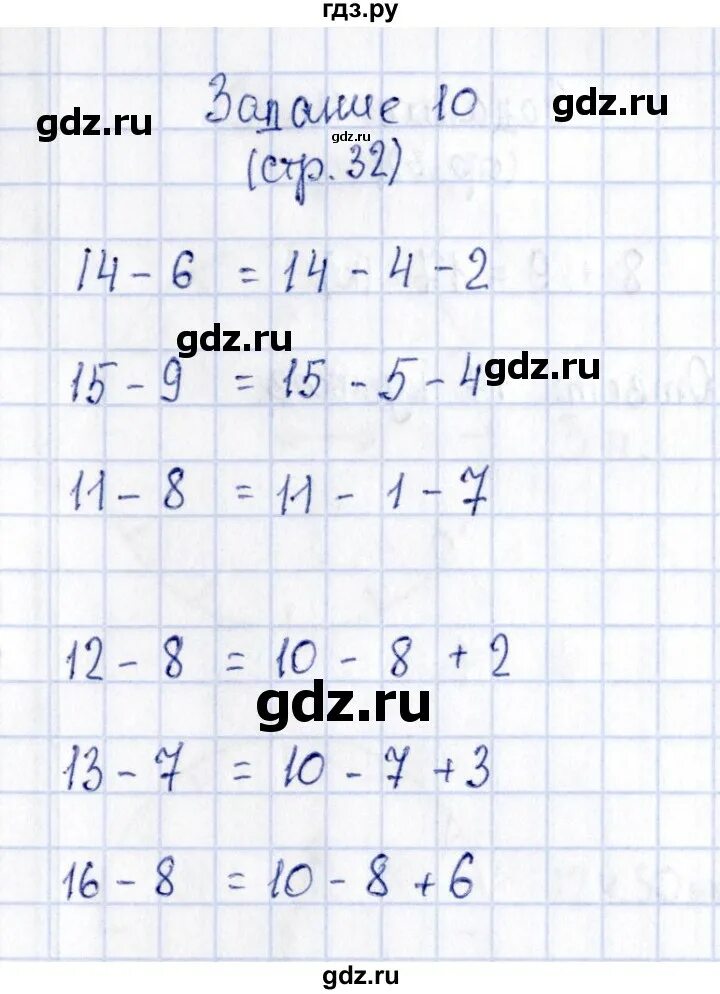 гдз.ру
Задание 10
gdz.ru
gdz.ru
gdz.ru
(стр. 32)
14 - 6 = 14 - 4 - 2
gdz.ru
gdz.ru
15 - 9 = 15 - 5 - 4
11 - 8 = 11 - 1 - 7
gdz.ru
gdz.ru
12 - 8 = 10 - 8 + 2
gdz.ru
13 - 7 = 10 - 7 + 3
16 - 8 = 10 - 8 + 6
gdz.ru